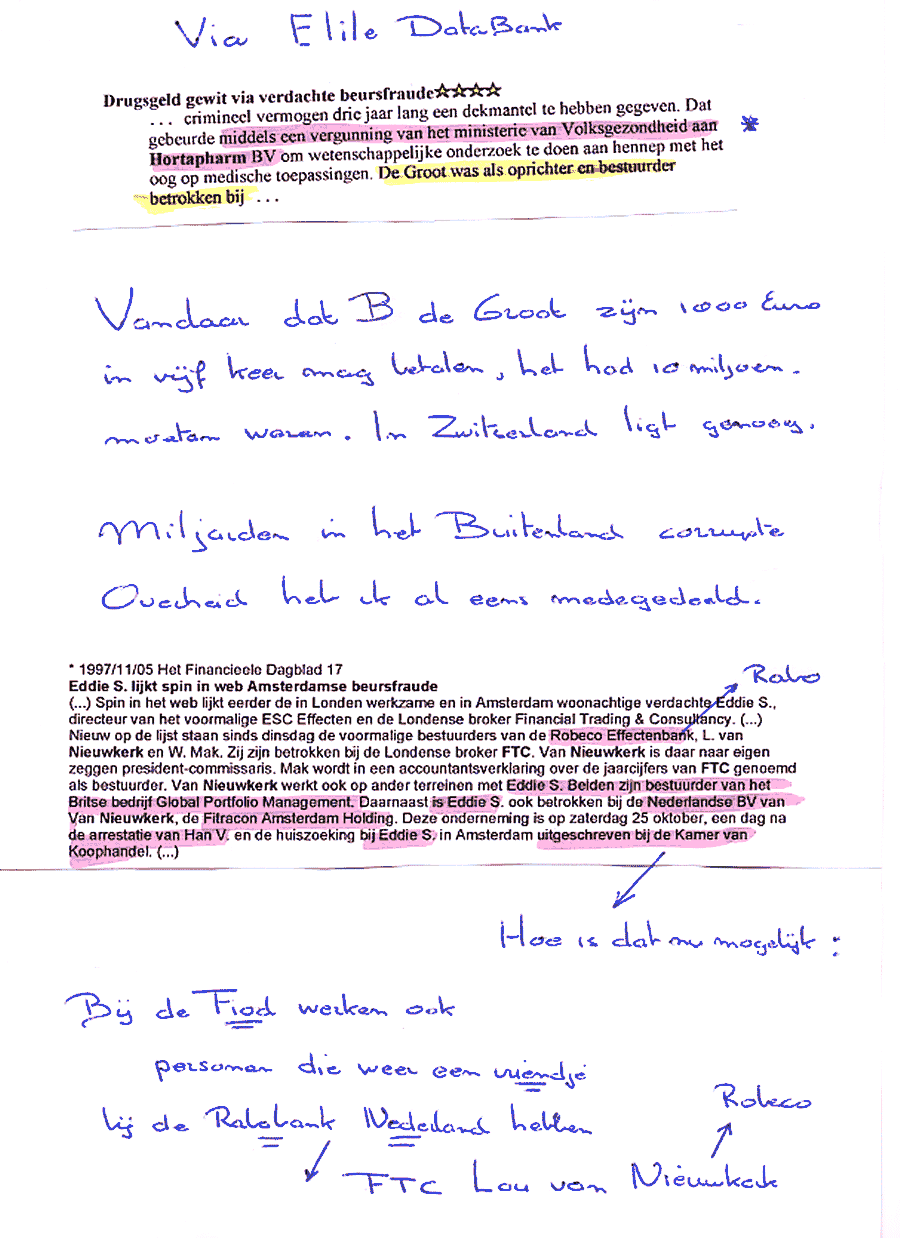 Via Elile DataBank
Drugsgeld gewit via verdachte beursfraude☆☆☆☆
... crimineel vermogen drie jaar lang een dekmantel te hebben gegeven. Dat
gebeurde middels een vergunning van het ministerie van Volksgezondheid aan *
Hortapharm BV om wetenschappelijke onderzoek te doen aan hennep met het
oog op medische toepassingen. De Groot was als oprichter en bestuurder
betrokken bij ...
Vandaar dat B de Groot zijn 1000 Euro
in vijf keer mag betalen, het had 10 miljoen.
moeten waren. In Zwitserland ligt genoeg.
Miljarden in het Buitenland corrupte
Overheid heb ik al eens medegedeeld.
* 1997/11/05 Het Financieele Dagblad 17
Rabo
Eddie S. lijkt spin in web Amsterdamse beursfraude
(...) Spin in het web lijkt eerder de in Londen werkzame en in Amsterdam woonachtige verdachte Eddie S.,
directeur van het voormalige ESC Effecten en de Londense broker Financial Trading & Consultancy. (...)
Nieuw op de lijst staan sinds dinsdag de voormalige bestuurders van de Robeco Effectenbank, L. van
Nieuwkerk en W. Mak. Zij zijn betrokken bij de Londense broker FTC. Van Nieuwkerk is daar naar eigen
zeggen president-commissaris. Mak wordt in een accountantsverklaring over de jaarcijfers van FTC genoemd
als bestuurder. Van Nieuwkerk werkt ook op ander terreinen met Eddie S. Beiden zijn bestuurder van het
Britse bedrijf Global Portfolio Management. Daarnaast is Eddie S. ook betrokken bij de Nederlandse BV van
Van Nieuwkerk, de Fitracon Amsterdam Holding. Deze onderneming is op zaterdag 25 oktober, een dag na
de arrestatie van Han V. en de huiszoeking bij Eddie S. in Amsterdam uitgeschreven bij de Kamer van
Koophandel. (...)
Hoe is dat nu mogelijk :
Bij de Fiod werken ook
personen die weer een vriendje
bij de Rabobank Nederland hebben
Robeco
FTC Lou van Nieuwkerk